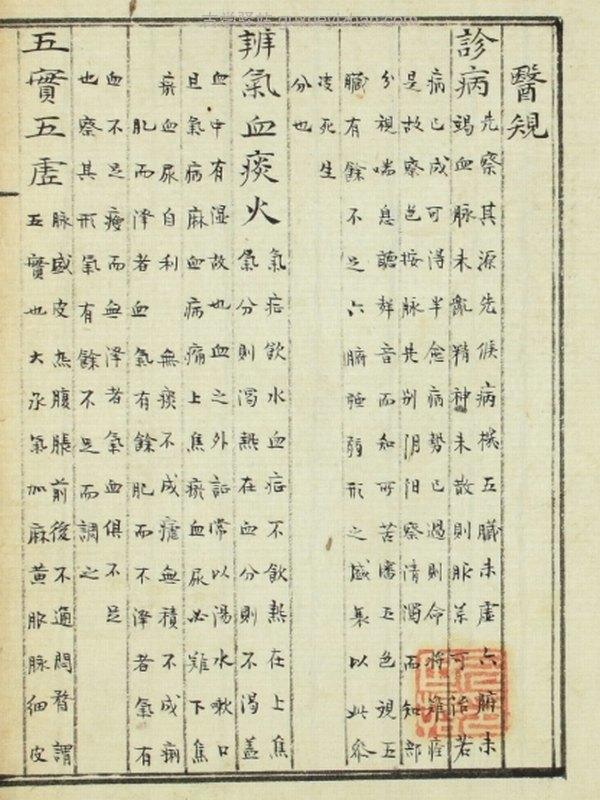 醫規
診病先察其源先候病機五臟未虛六腑未
竭血脈未亂精神未散則服藥可治若
病已成可得半愈病勢已過則命將難痊
是故察色按脈先別阴阳察清濁而知部
分視喘息聽聲音而知所苦審五色視五
臟有餘不足六腑強弱形之盛衰以此參
死生
分也
辨氣血痰火氣症飲水血症不飲熱在上焦
氣分則渴熱在血分則不渴蓋
血中有湿故也血之外証常以湯水嗽口
且氣病麻血病痛上焦瘀血尿必難下焦
瘀血尿自利 無痰不成瘧無積不成痢
肥而澤者血氣有餘肥而不澤者氣有
血不足瘦而無澤者氣血俱不足
也察其形氣有餘不足而調之
五實五虛脈盛皮热腹脹前後不通悶瞀謂
五實也大承氣加麻黄服脈細皮